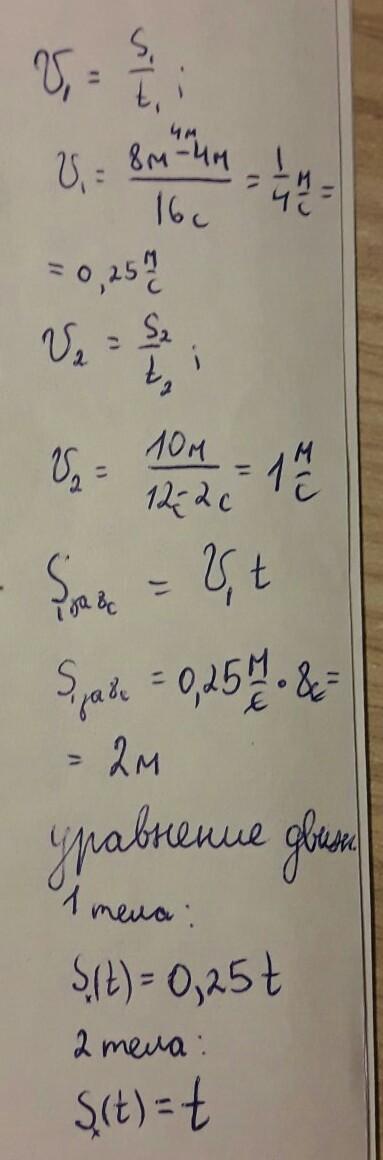 V₁ = S₁/t₁ ;
V₁ = (8м - 4м)/16с = 1/4 м/с =
4м
= 0,25 м/с
V₂ = S₂/t₂ ;
V₂ = 10м/(12с - 2с) = 1 м/с
S₁ за 8с = V₁ t
S₁ за 8с = 0,25 м/с · 8с =
= 2м
уравнение движ.
1 тела:
Sₓ(t) = 0,25t
2 тела:
Sₓ(t) = t